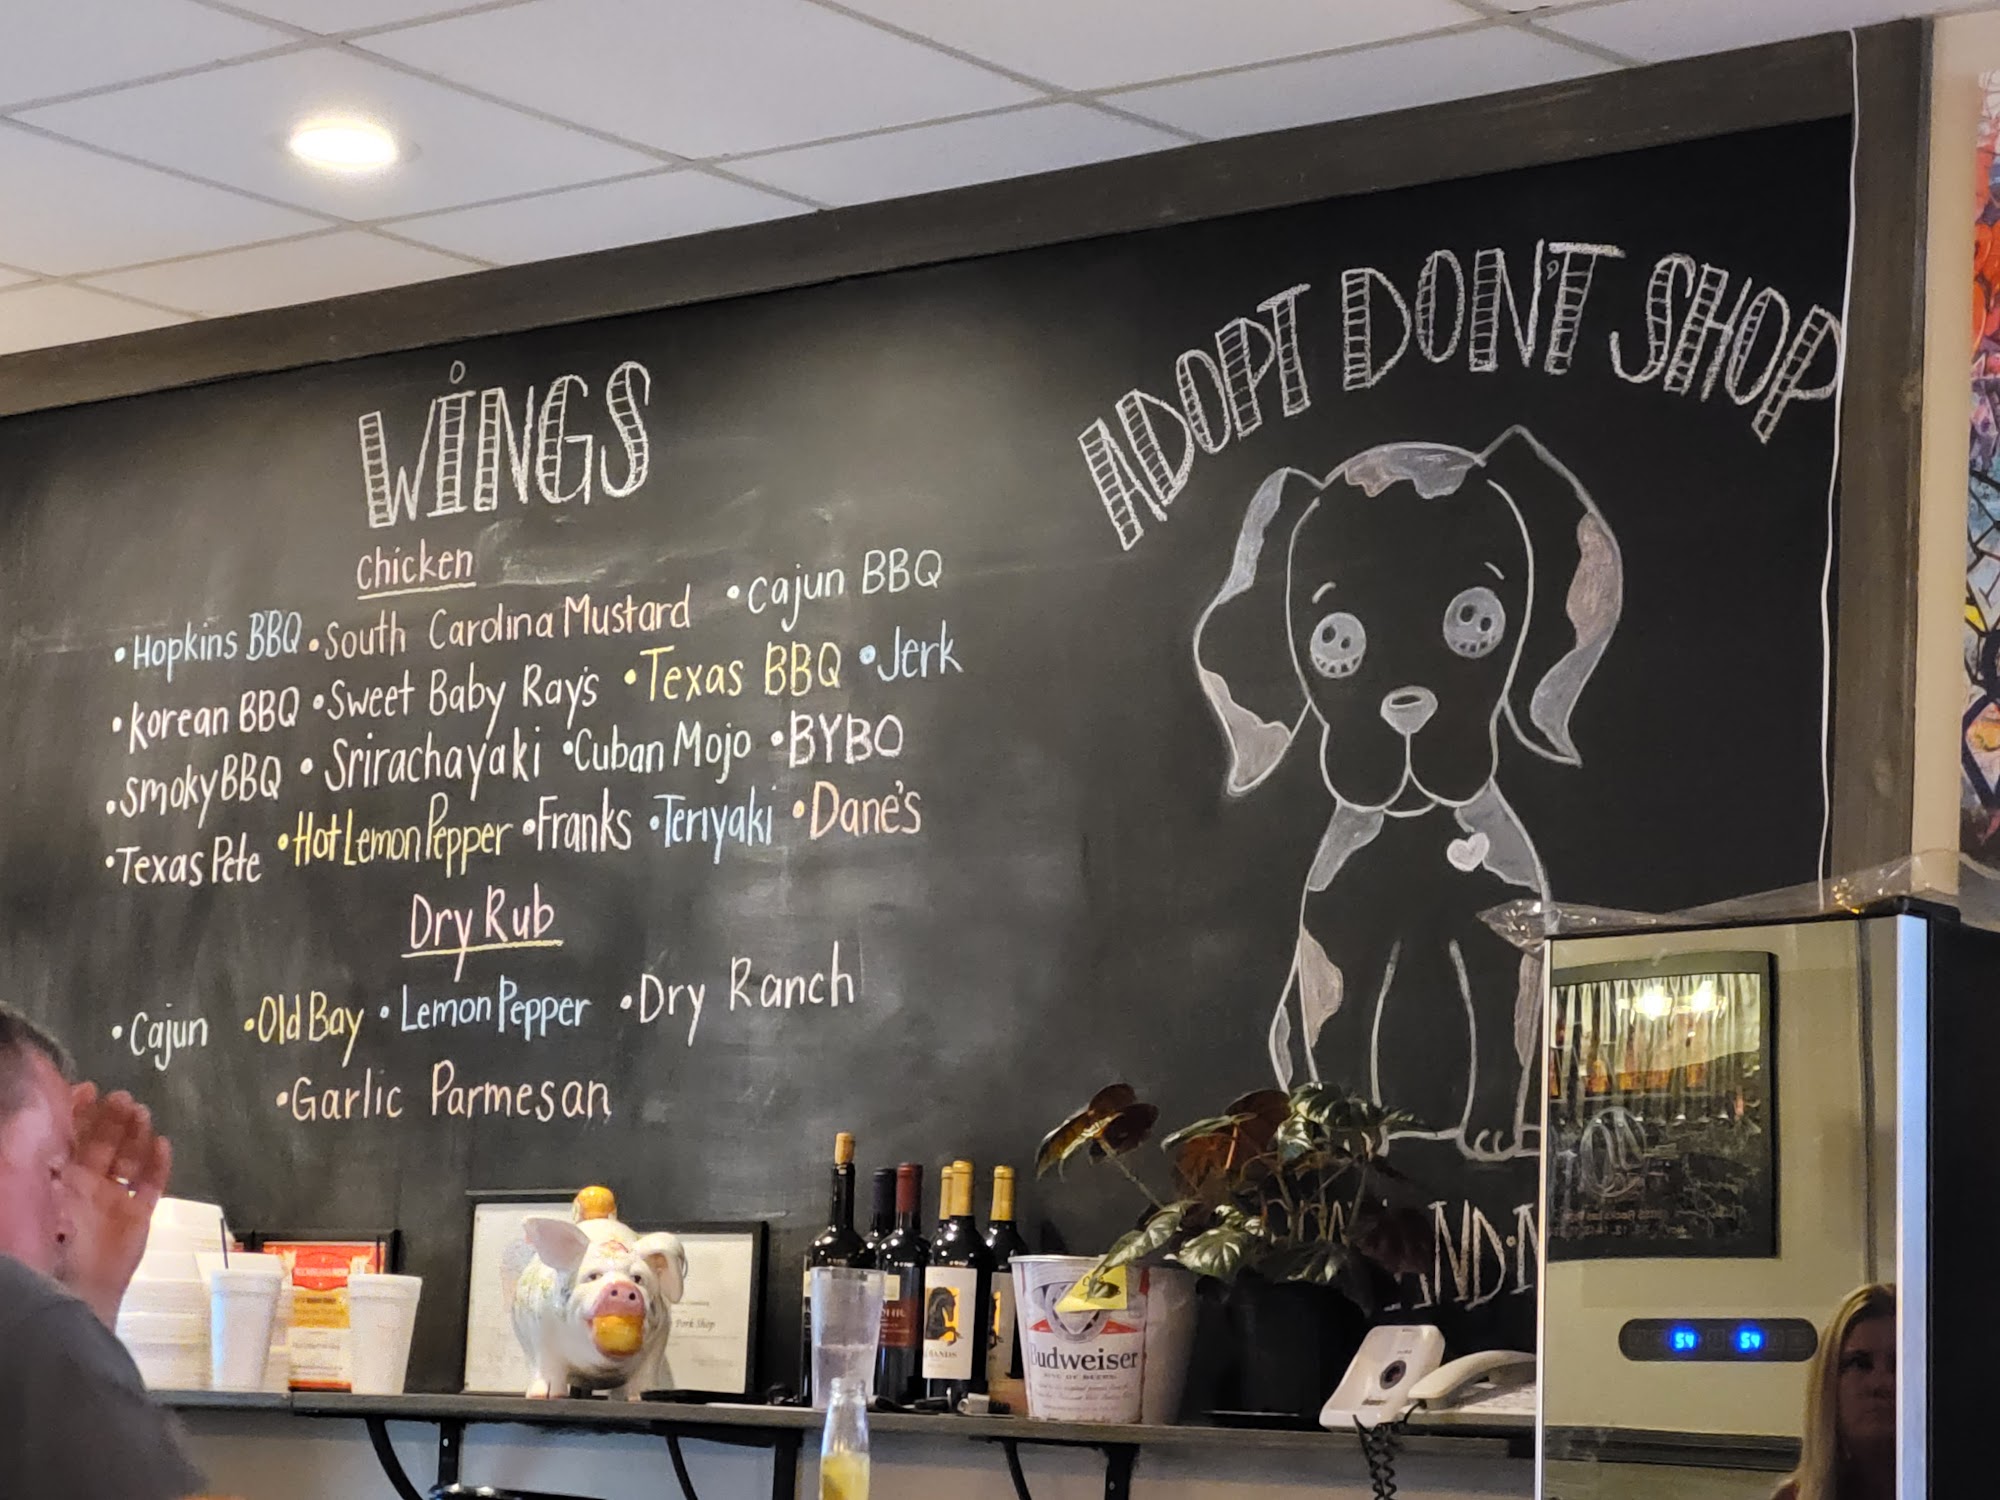 WINGS
Chicken
• Hopkins BBQ • South Carolina Mustard • Cajun BBQ
• Korean BBQ • Sweet Baby Ray's • Texas BBQ • Jerk
• Smoky BBQ • Srirachayaki • Cuban Mojo • BYBO
• Texas Pete • Hot Lemon Pepper • Franks • Teriyaki • Dane's
Dry Rub
• Cajun • Old Bay • Lemon Pepper • Dry Ranch
• Garlic Parmesan
ADOPT DON'T SHOP
Pork Shop
Budweiser
KING OF BEERS
54 54